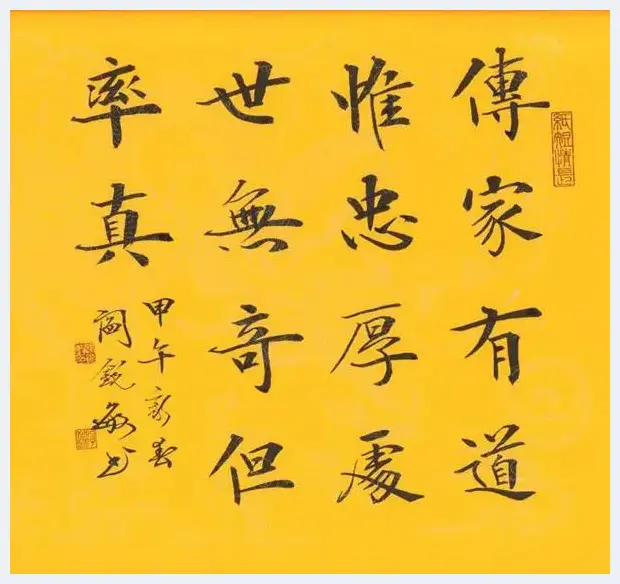 傳家有道
惟忠厚處
世無奇但
率真
甲午新春
閻銳敏书
紙短情長